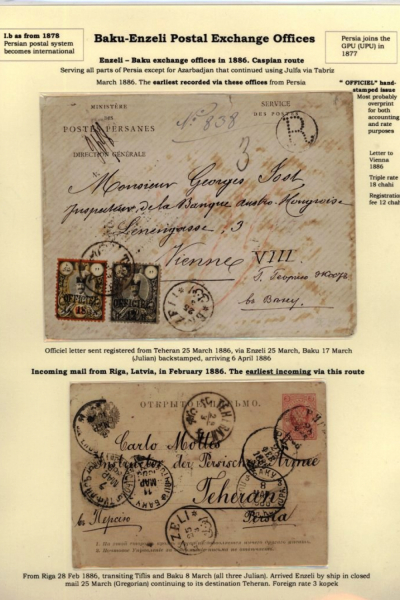 I.b as from 1878
Persian postal system
becomes international
Baku-Enzeli Postal Exchange Offices
Persia joins the
GPU (UPU) in
1877
Enzeli – Baku exchange offices in 1886. Caspian route
Serving all parts of Persia except for Azarbadjan that continued using Julfa via Tabriz
March 1886. The earliest recorded via these offices from Persia
" OFFICIEL" hand-
stamped issue
Most probably
overprint for
both
accounting
and rate
purposes
Letter to
Vienna
1886
Triple rate
18 chahi
Registration
fee 12 chahi
MINISTÈRE
DES
POSTES PERSANES
DIRECTION GÉNÉRALE
SERVICE
DES POSTES
R
3
Monsieur Georges Jost
propriétaire de la Banque austro-Hongroise
3
Vienne VIII.
OFFICIEL
18
OFFICIEL
18
ENZELI
Officiel letter sent registered from Teheran 25 March 1886, via Enzeli 25 March, Baku 17 March
(Julian) backstamped, arriving 6 April 1886
Incoming mail from Riga, Latvia, in February 1886. The earliest incoming via this route
ОТКРЫТОЕ ПИСЬМО.
Carlo Mottes
Instructor der Persischen Armee
Teheran
Persia
въ Персію
ENZELI
From Riga 28 Feb 1886, transiting Tiflis and Baku 8 March (all three Julian). Arrived Enzeli by ship in closed
mail 25 March (Gregorian) continuing to its destination Teheran. Foreign rate 3 kopek